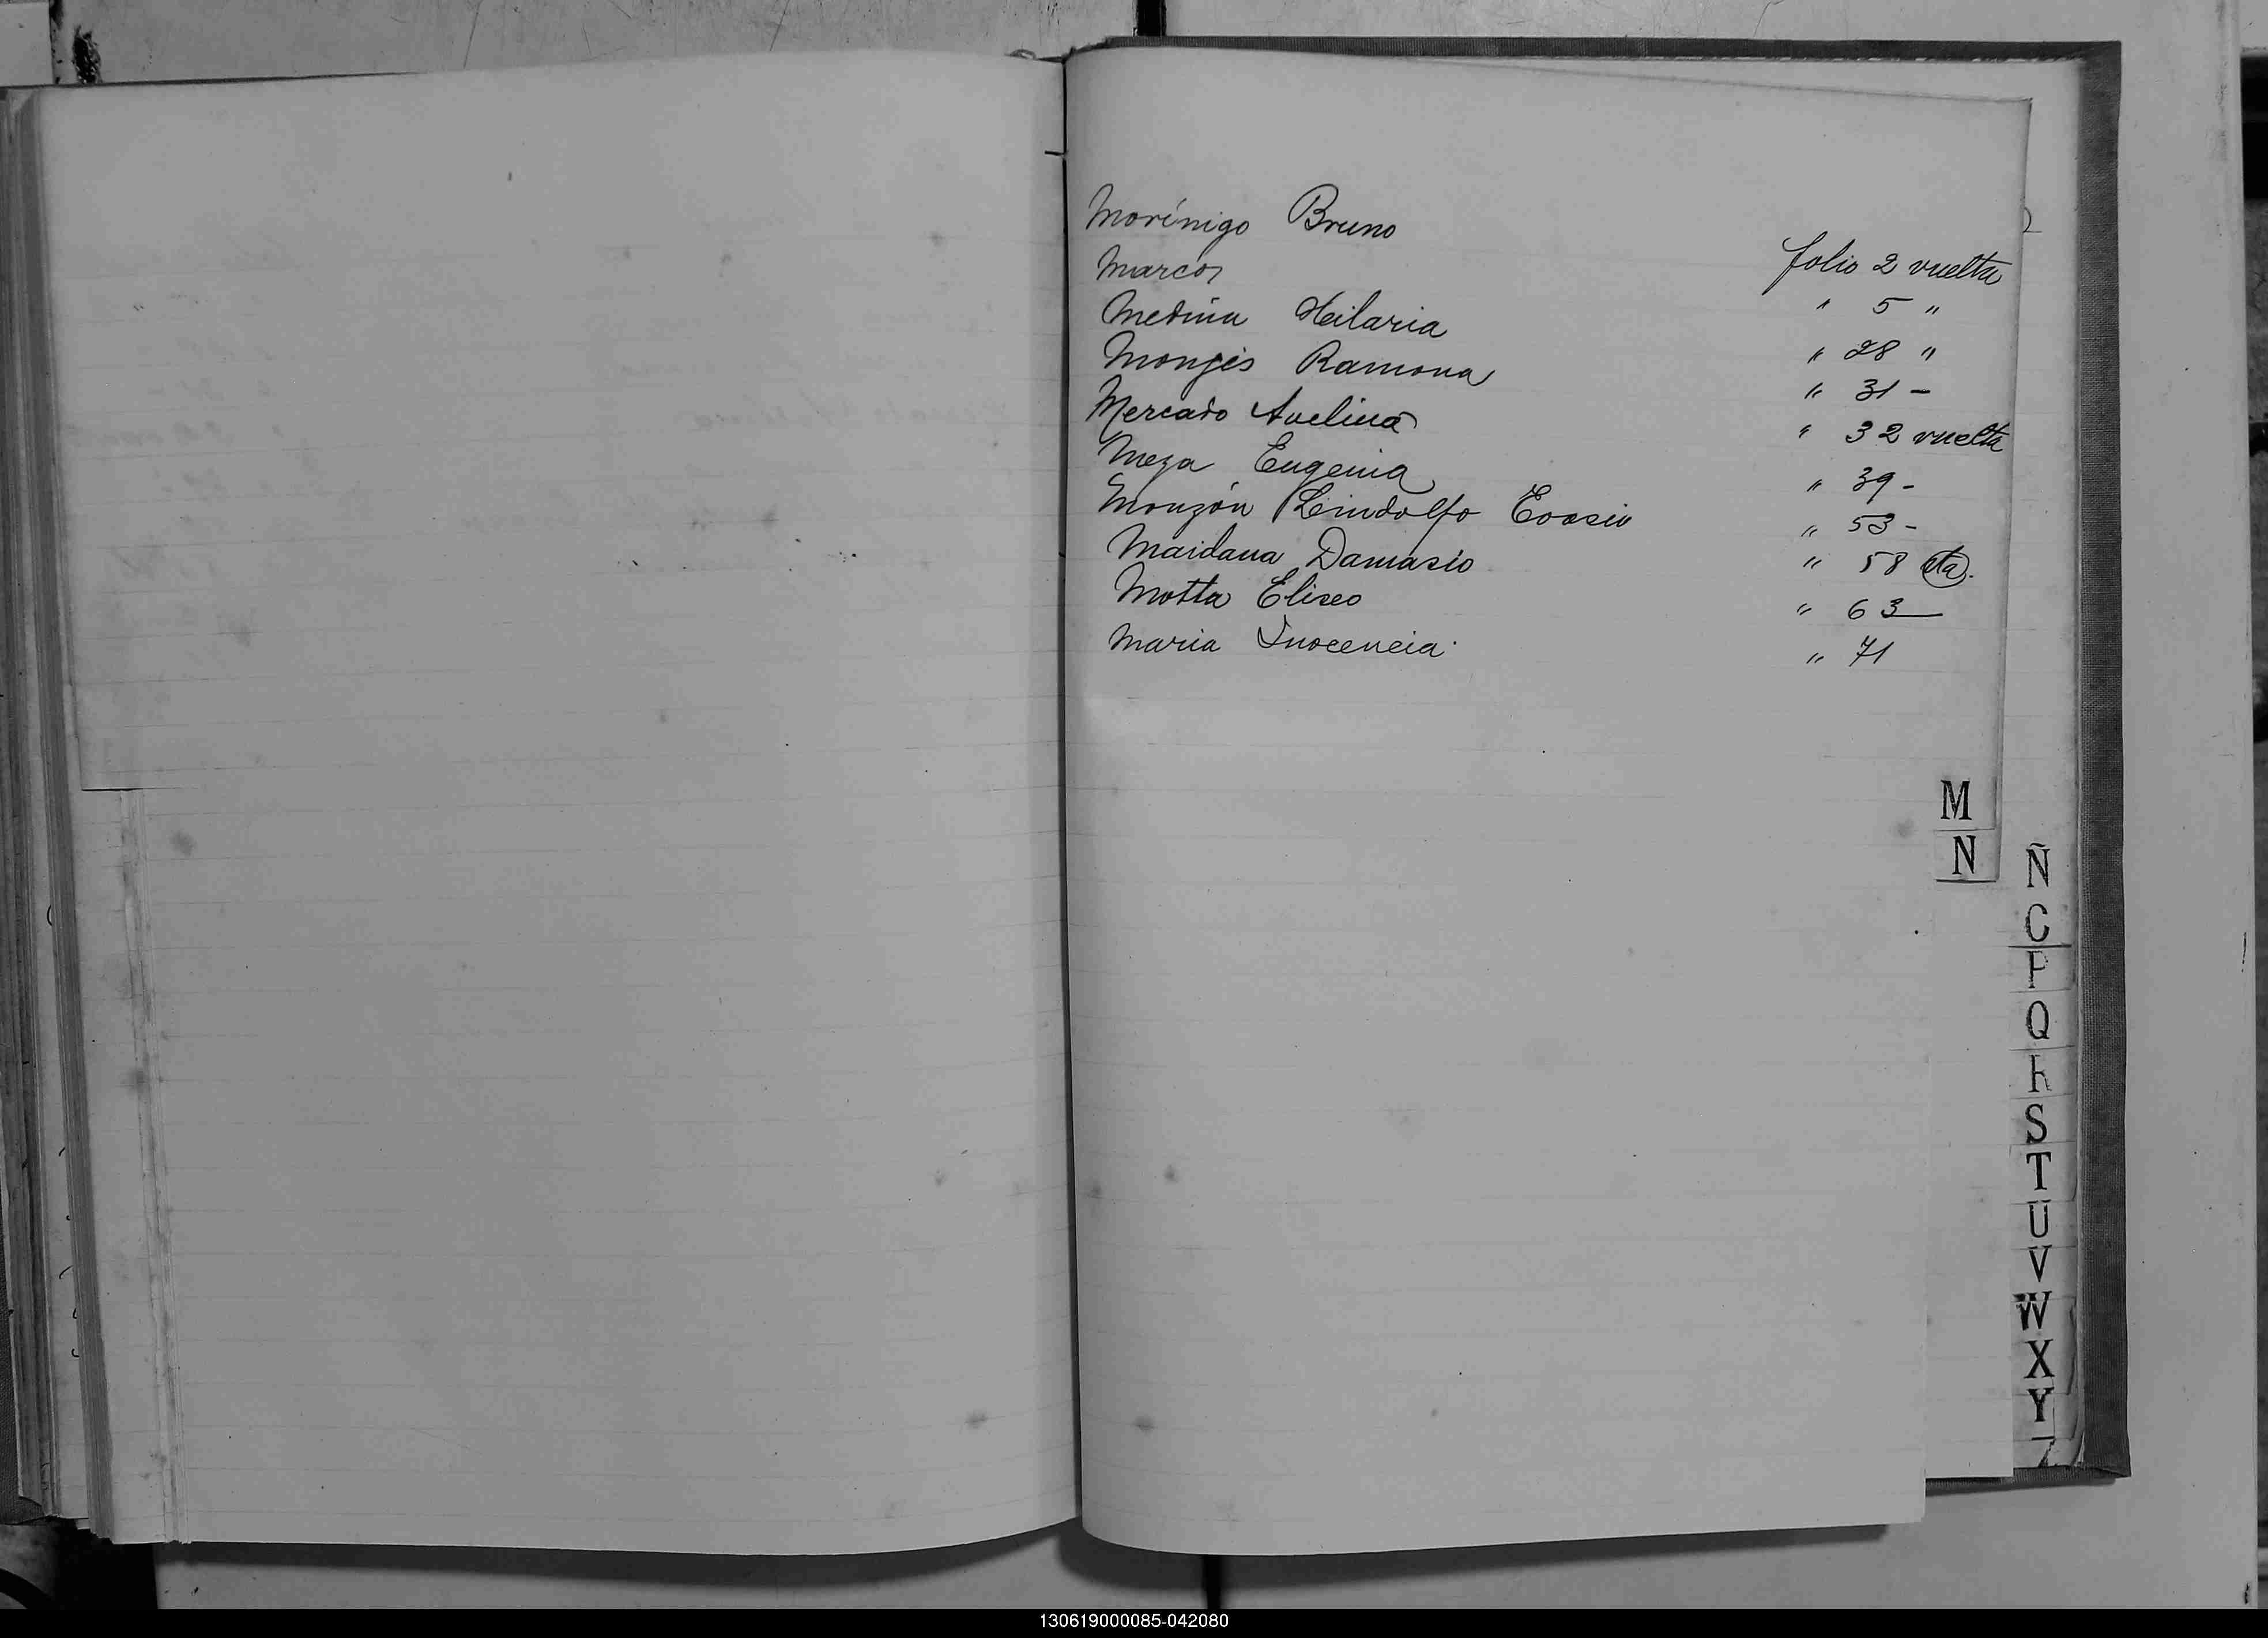 Morínigo Bruno folio 2 vuelta
Marcos " 5 "
Medina Hilaria " 28 "
Monges Ramona " 31 -
Mercado Avelina " 32 vuelta
Meza Eugenia " 39 -
Monzón Lindolfo " 53 -
Maidana Damasio " 58 vta.
Motta Eliseo " 63 —
Maria Inocencia " 71
M
N
Ñ
O
P
Q
R
S
T
U
V
W
X
Y
130619000085-042080